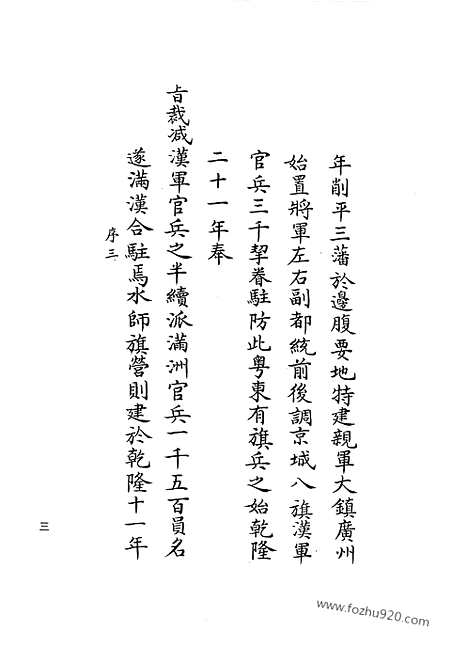 年削平三藩於邊腹要地特建親軍大鎮廣州
始置將軍左右副都統前後調京城八旗漢軍
官兵三千挈眷駐防此粵東有旗兵之始乾隆
二十一年奉
旨裁減漢軍官兵之半續派滿洲官兵一千五百員名
遂滿漢合駐焉水師旗營則建於乾隆十一年
序三
三
www.fozhu920.com